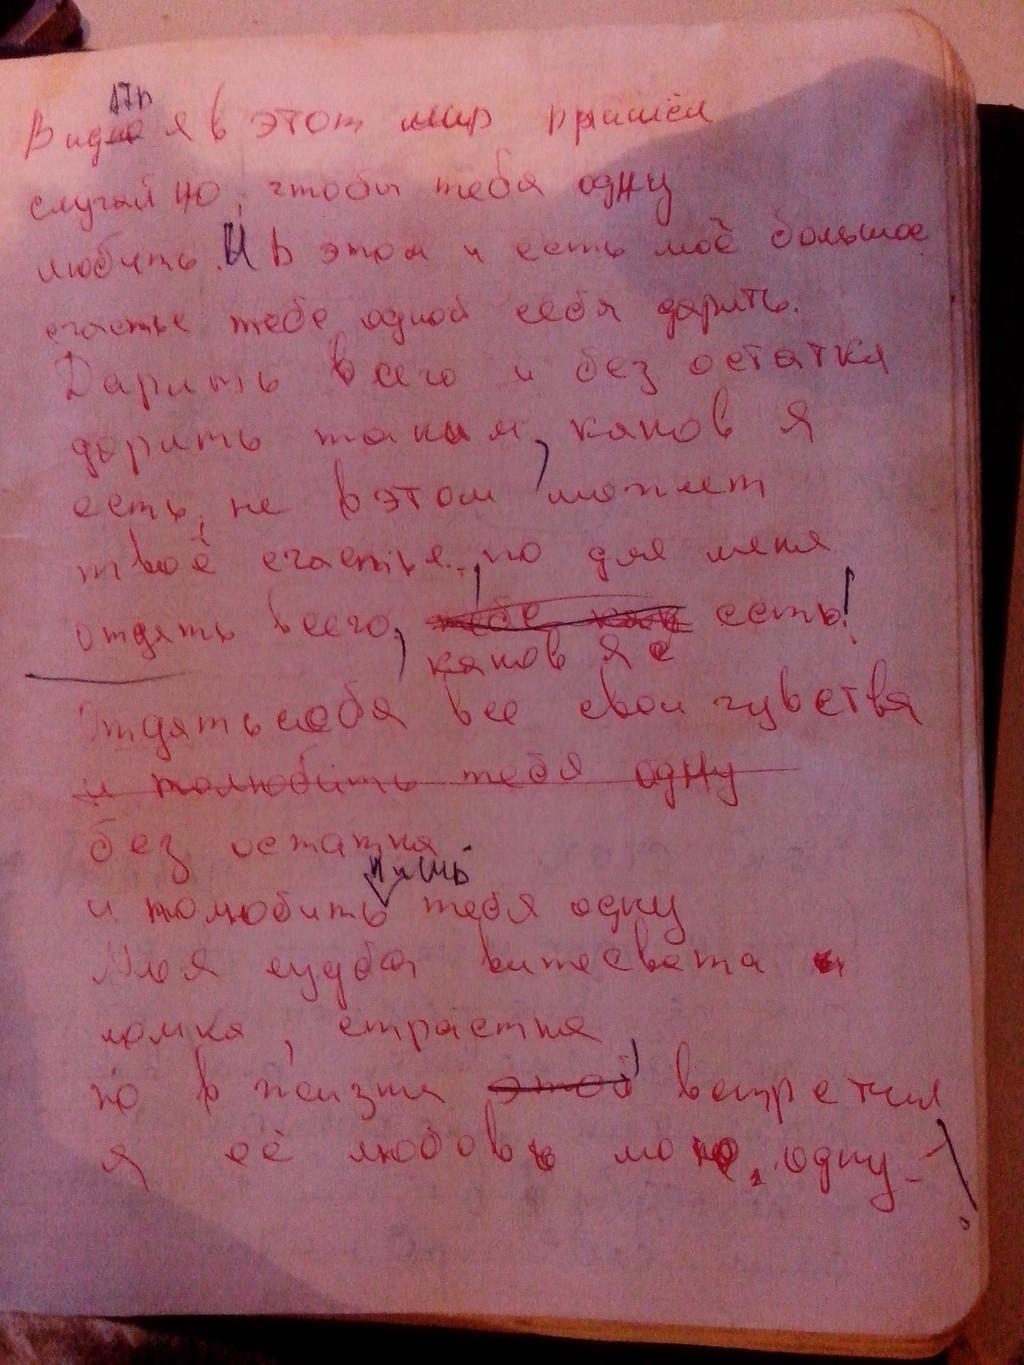 Видать я в этот мир пришёл
случайно, чтобы тебя одну
любить. И в этом и есть моё большое
счастье тебе одной себя дарить.
Дарить всего и без остатка
дарить таким, каков я
есть, не в этом может
твоё счастья, но для меня
отдать всего, тебе как есть!
каков я е
Отдать себя все свои чувства
и полюбить тебя одну
без остатка
лишь
и полюбить тебя одну
Моя судьба витевата
ломка, страстна,
но в жизни этой встретил
я её любовь мою, одну!